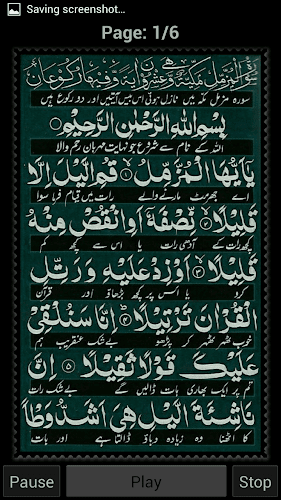 Saving screenshot...
Page: 1/6
سورہ مزمل مکہ میں نازل ہوئی اس میں بیس آیتیں اور دو رکوع ہیں
بِسْمِ اللّٰهِ الرَّحْمٰنِ الرَّحِيْمِ
اللہ کے نام سے شروع جو نہایت مہربان رحم والا
يٰۤاَيُّهَا الْمُزَّمِّلُ ۙ۱ قُمِ الَّيْلَ اِلَّا
اے جھرمٹ مارنے والے رات میں قیام فرما سوا
قَلِيْلًا ۙ۲ نِّصْفَهٗۤ اَوِ انْقُصْ مِنْهُ
کچھ رات کے آدھی رات یا اس سے کچھ کم
قَلِيْلًا ۙ۳ اَوْ زِدْ عَلَيْهِ وَ رَتِّلِ
کرو یا اس پر کچھ بڑھاؤ اور قرآن
الْقُرْاٰنَ تَرْتِيْلًا ؕ۴ اِنَّا سَنُلْقِيْ
خوب ٹھہر ٹھہر کر پڑھو بےشک عنقریب ہم
عَلَيْكَ قَوْلًا ثَقِيْلًا ۵ اِنَّ
تم پر ایک بھاری بات ڈالیں گے بےشک رات
نَاشِئَةَ الَّيْلِ هِيَ اَشَدُّ وَطْاً
کا اٹھنا وہ زیادہ دباؤ ڈالتا ہے اور بات
Pause Play Stop